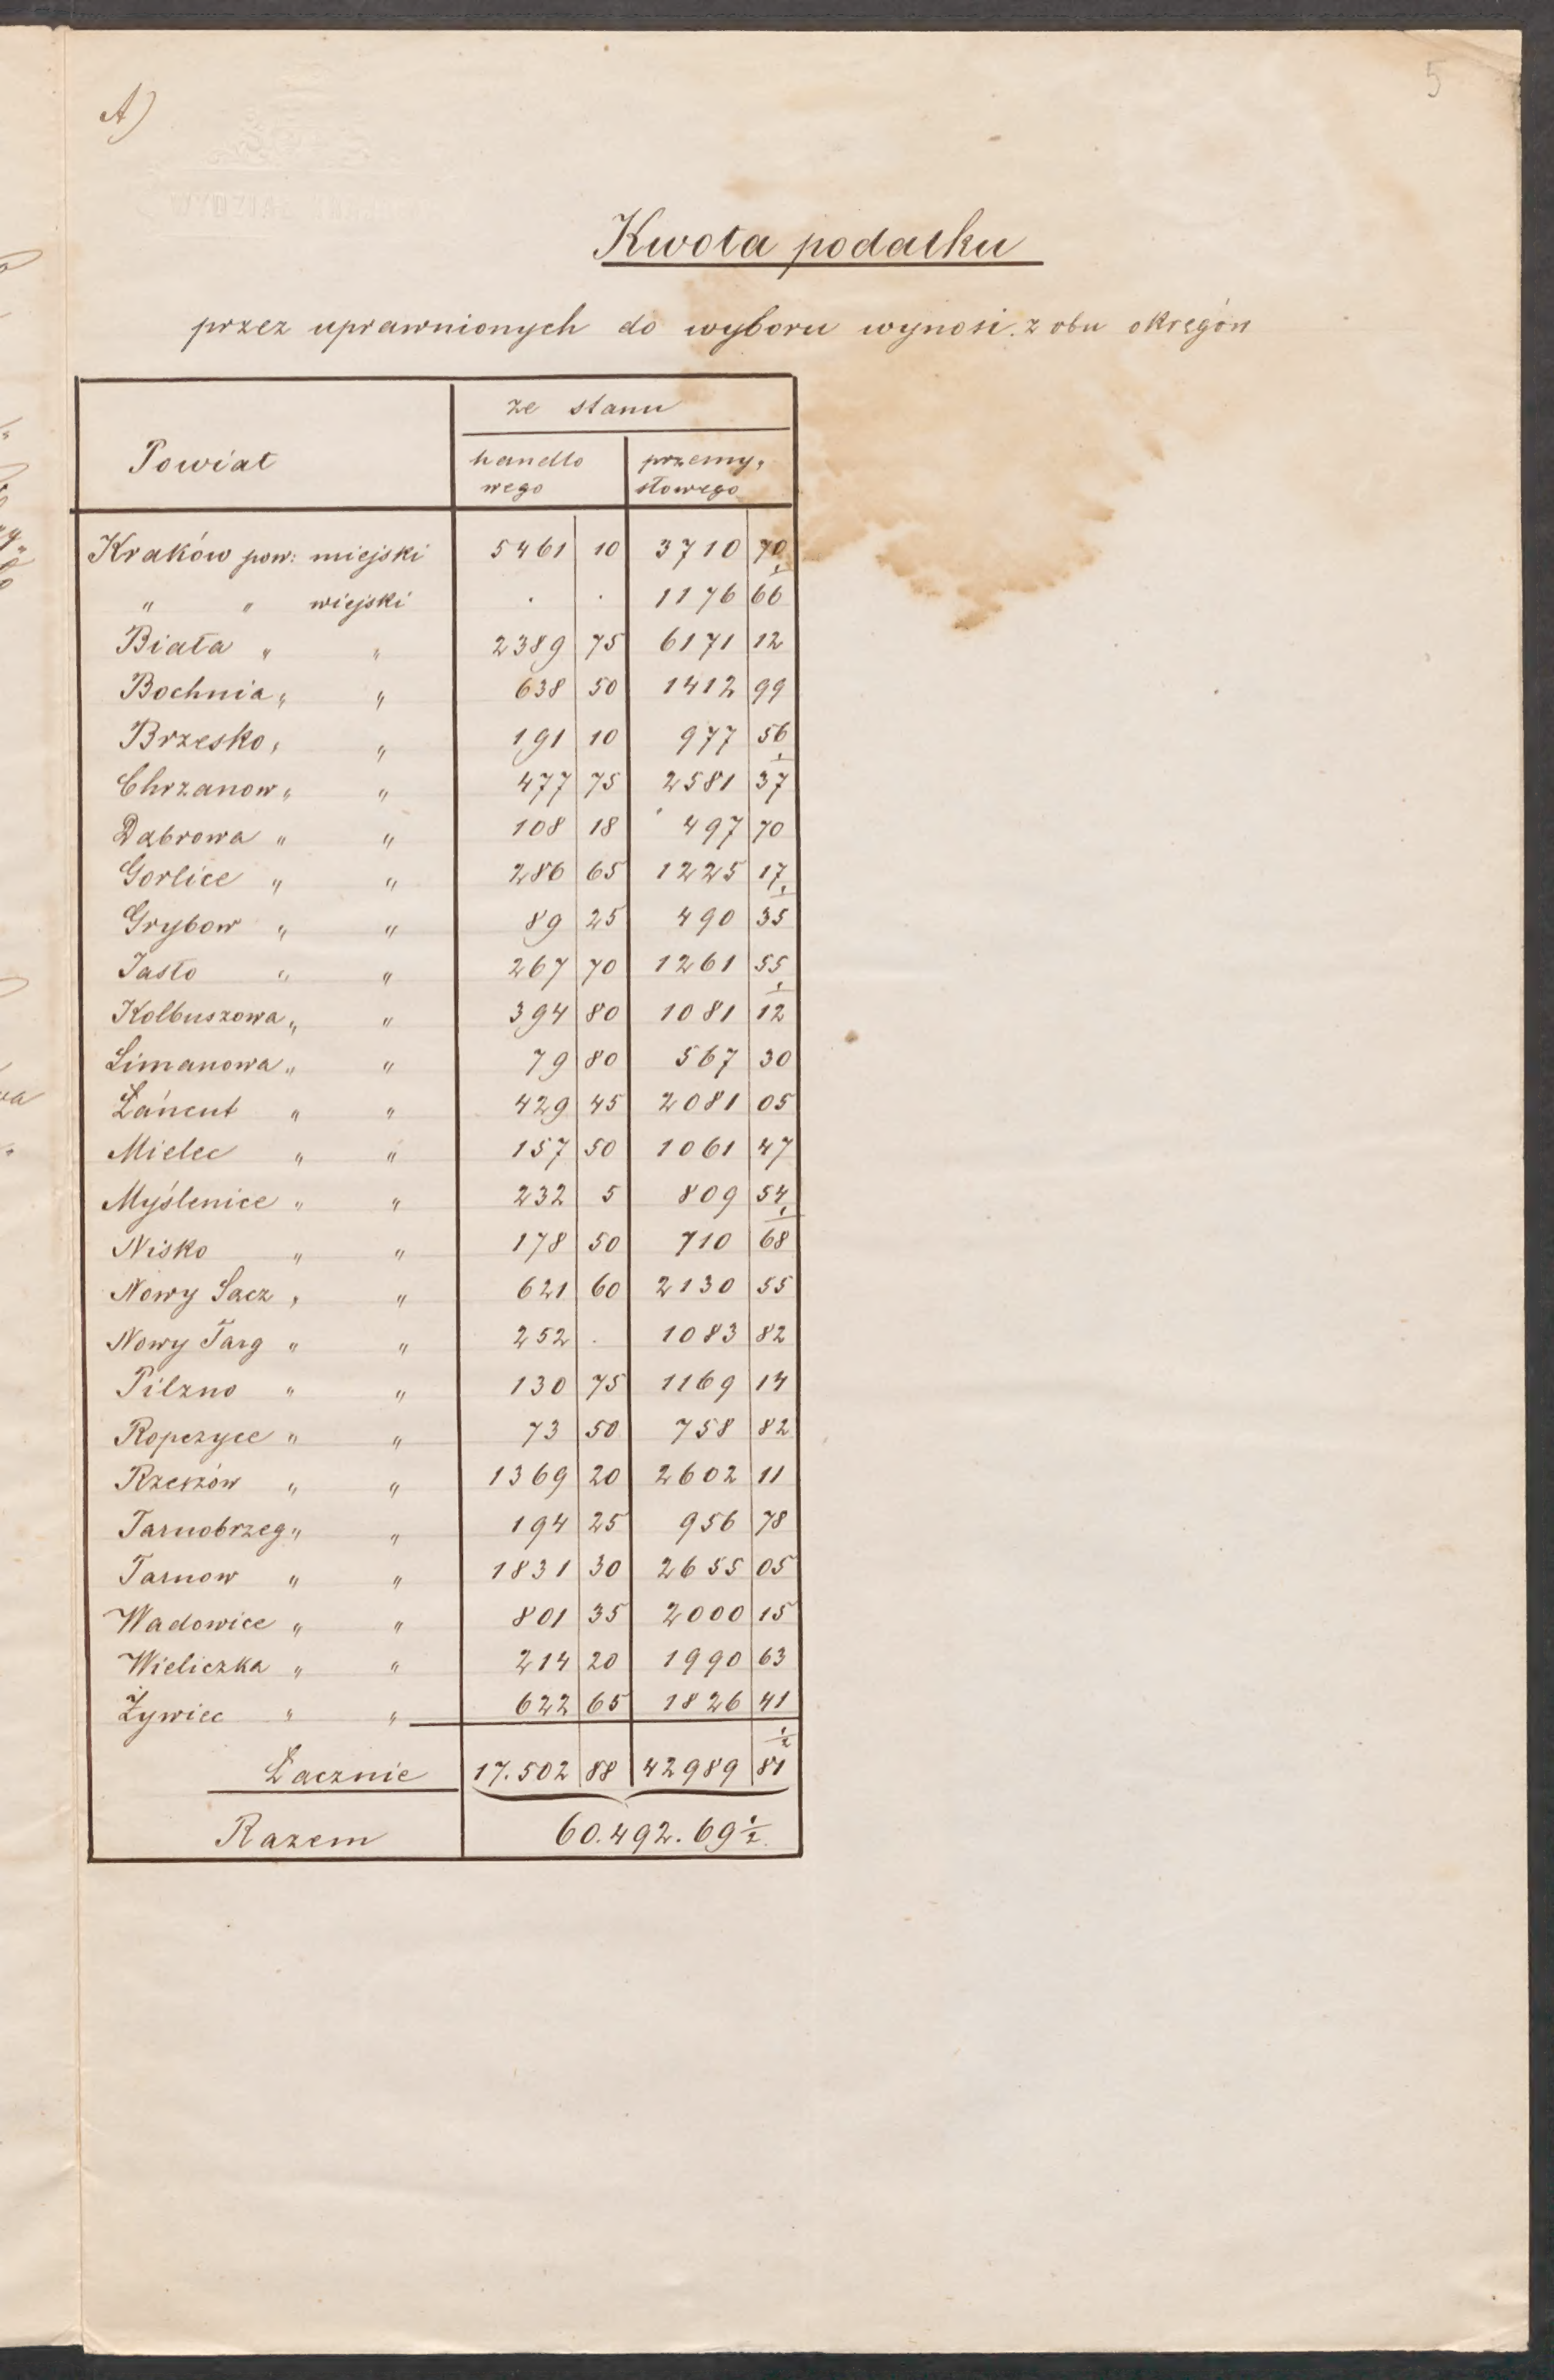 A)
5
Kwota podatku
przez uprawnionych do wyboru wynosi z obu okręgów
Powiat
ze stanu
handlo
wego
przemy„
słowego
Kraków pow: miejski 5461 10 3710 70
„ „ wiejski . . 1176 66
Biała „ „ 2389 75 6171 12
Bochnia „ „ 638 50 1412 99
Brzesko „ „ 191 10 977 56
Chrzanow „ „ 477 75 2581 37
Dąbrowa „ „ 108 18 497 70
Gorlice „ „ 286 65 1225 17
Grybow „ „ 89 25 490 35
Jasło „ „ 267 70 1261 55
Kolbuszowa „ „ 394 80 1081 12
Limanowa „ „ 79 80 567 30
Łańcut „ „ 429 45 2081 05
Mielec „ „ 157 50 1061 47
Myślenice „ „ 232 5 809 54
Nisko „ „ 178 50 710 68
Nowy Sącz „ „ 621 60 2130 55
Nowy Targ „ „ 252 . 1083 82
Pilzno „ „ 130 75 1169 14
Ropczyce „ „ 73 50 758 82
Rzeszów „ „ 1369 20 2602 11
Tarnobrzeg „ „ 194 25 956 78
Tarnow „ „ 1831 30 2655 05
Wadowice „ „ 801 35 2000 15
Wieliczka „ „ 214 20 1990 63
Żywiec „ „ 622 65 1826 41
Łacznie 17.502 88 42989 81 ½
Razem 60.492.69 ½